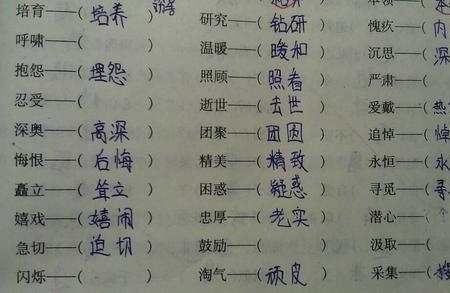 培育——(培养)
研究——(钻研)
本领——(本
呼啸——( )
温暖——(暖和)
愧疚——(内
抱怨——(埋怨)
照顾——(照看)
沉思——(深
忍受——( )
逝世——(去世)
严肃——(
深奥——(高深)
团聚——(团圆)
爱戴——(热
悔恨——(后悔)
精美——(精致)
追悼——(悼
矗立——(耸立)
困惑——(疑惑)
永恒——(永
嬉戏——(嬉闹)
忠厚——(老实)
寻觅——(寻
急切——(迫切)
鼓励——( )
潜心——(
闪烁——( )
淘气——(顽皮)
汲取——(
采集——(